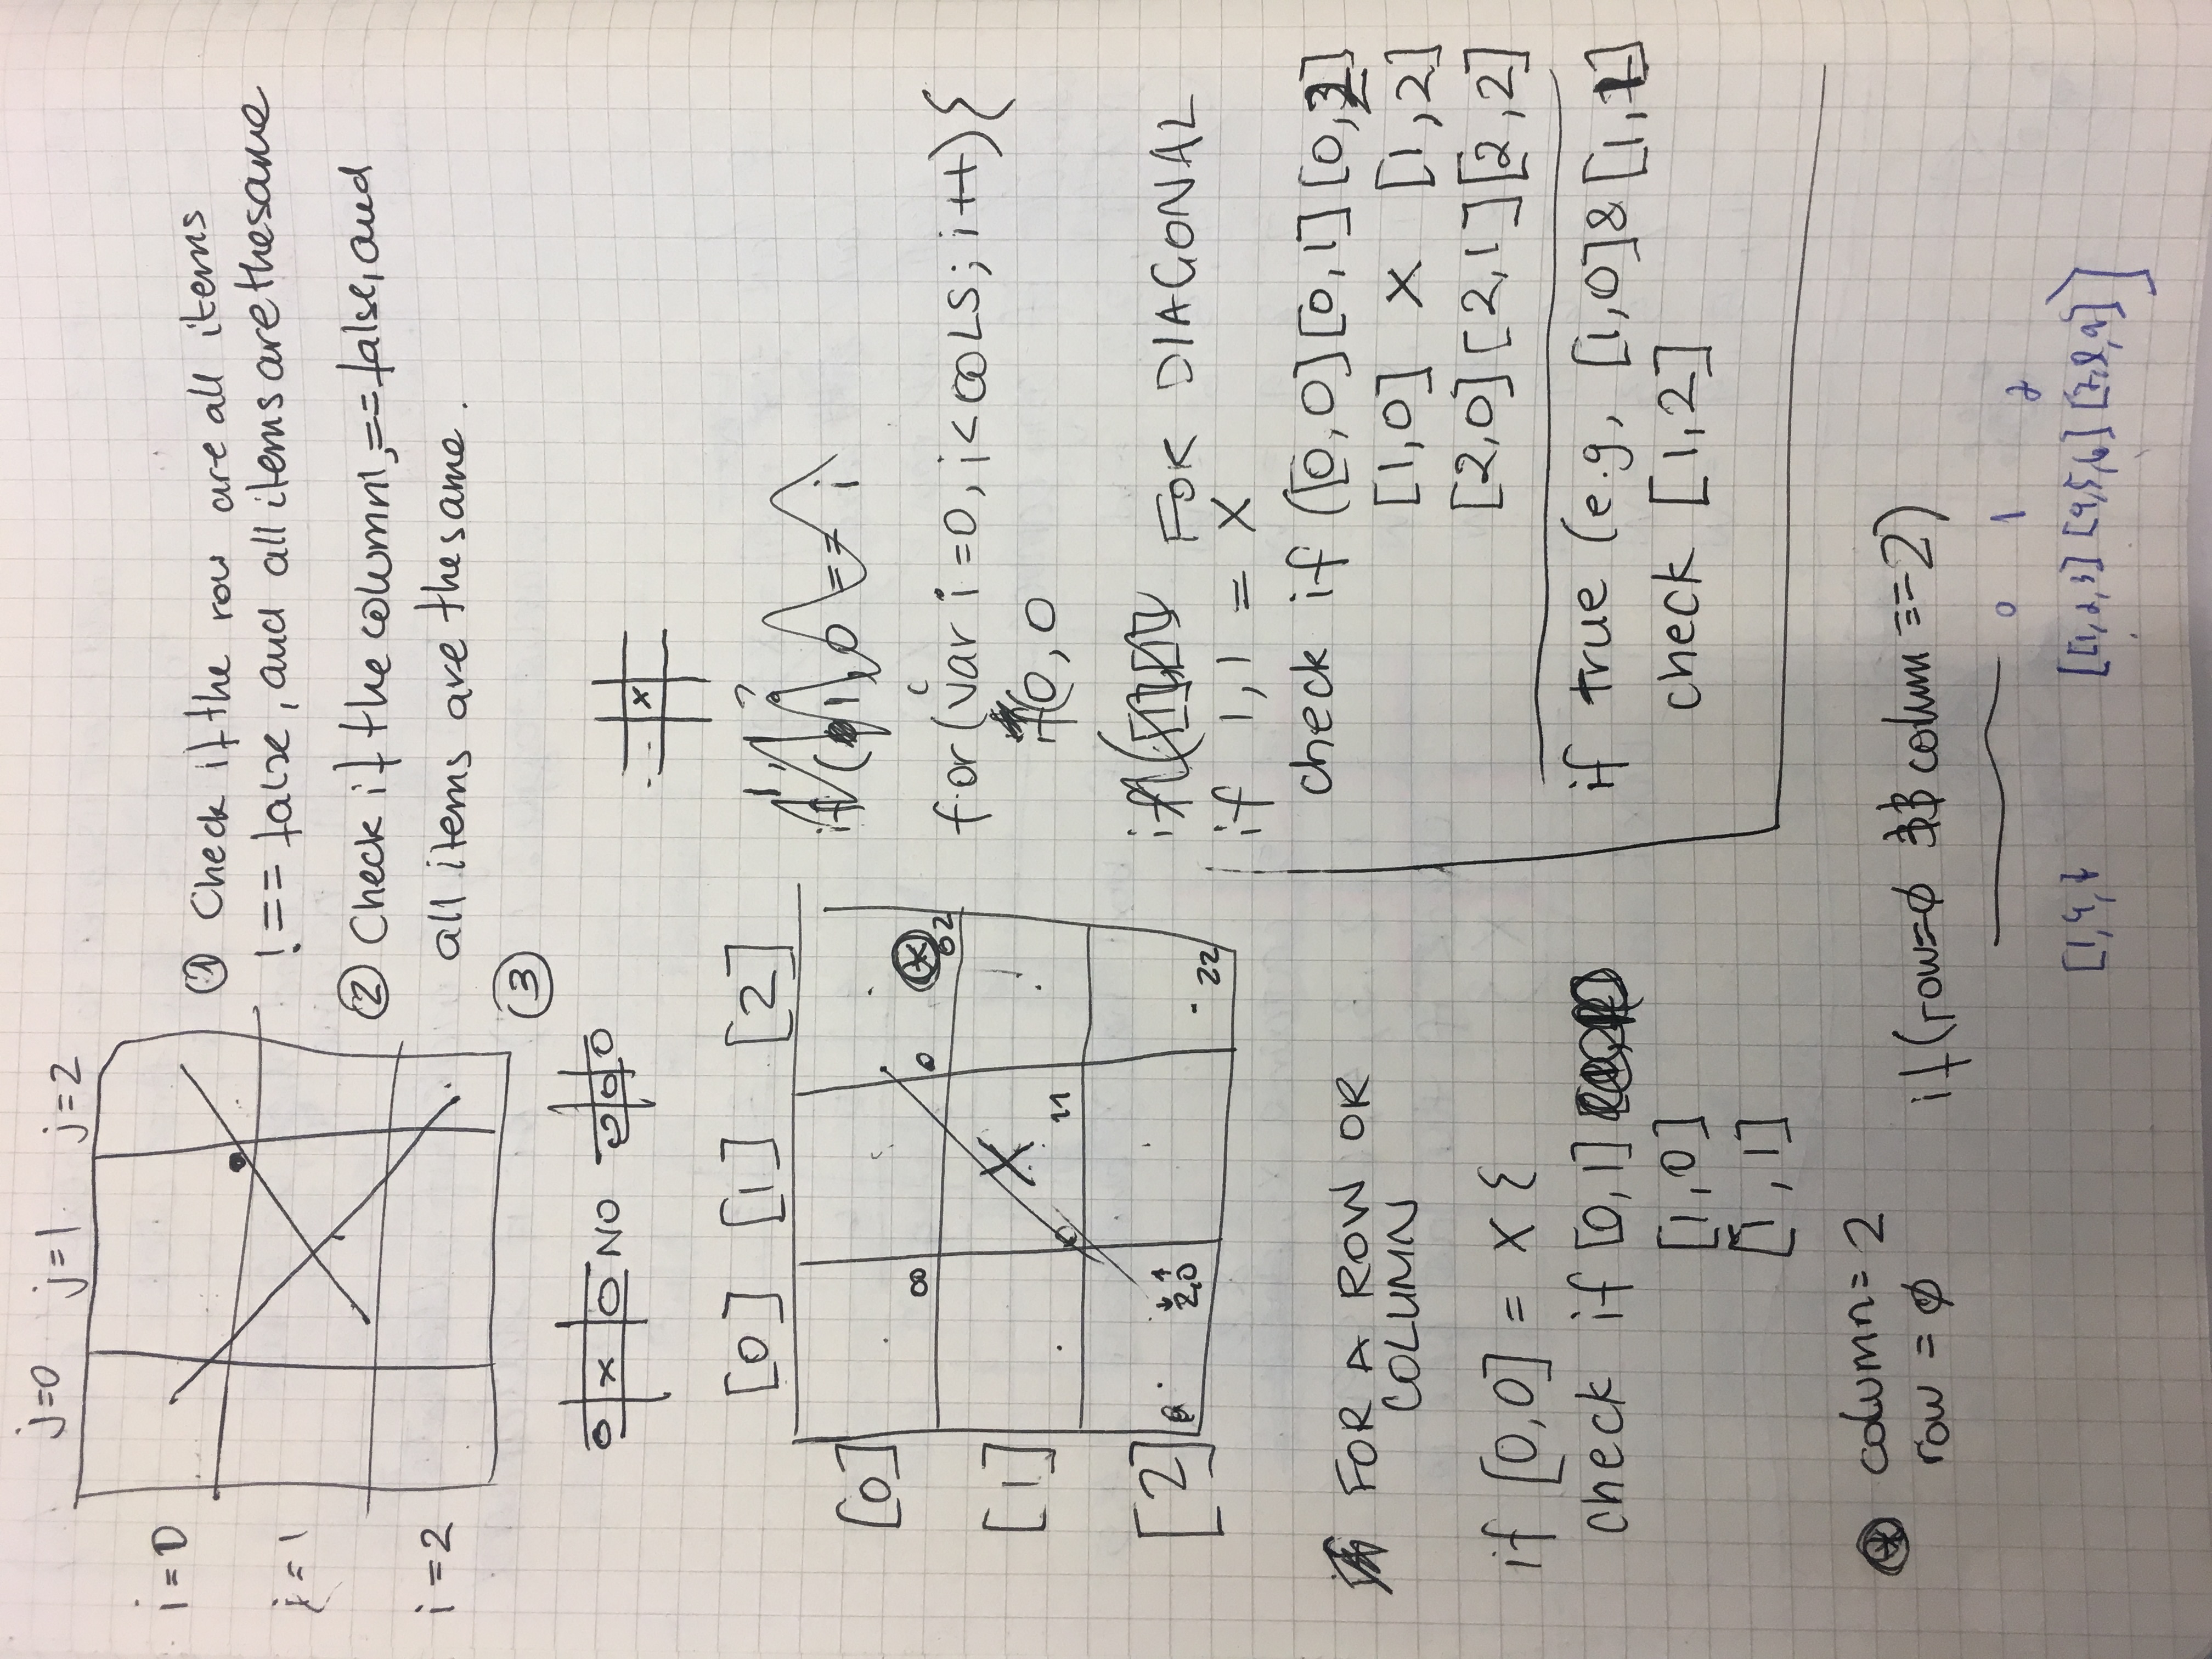 j=0 j=1 j=2
i=0
j=1
i=2
① Check if the row are all items
!== false, and all items are the same
② Check if the column !== false, and
all items are the same.
③
O X O NO O O O
X
[0] [1] [2]
[0]
[1]
[2]
00 02
X
11
2,0
22
if ( 1,0 == i
for(var i=0, i<COLS; i++){
if(0,0
FOR DIAGONAL
if 1,1 = X
check if ([0,0][0,1][0,2]
[1,0] X [1,2]
[2,0][2,1][2,2]
if true (e.g, [1,0]&[1,1]
check [1,2]
FOR A ROW OR
COLUMN
if [0,0] = X {
check if [0,1]
[1,0]
[1,1]
column= 2
row = Ø
if(row=Ø && column ===2)
0 1 2
[1,4,7
[[1,2,3] [4,5,6] [7,8,9]]